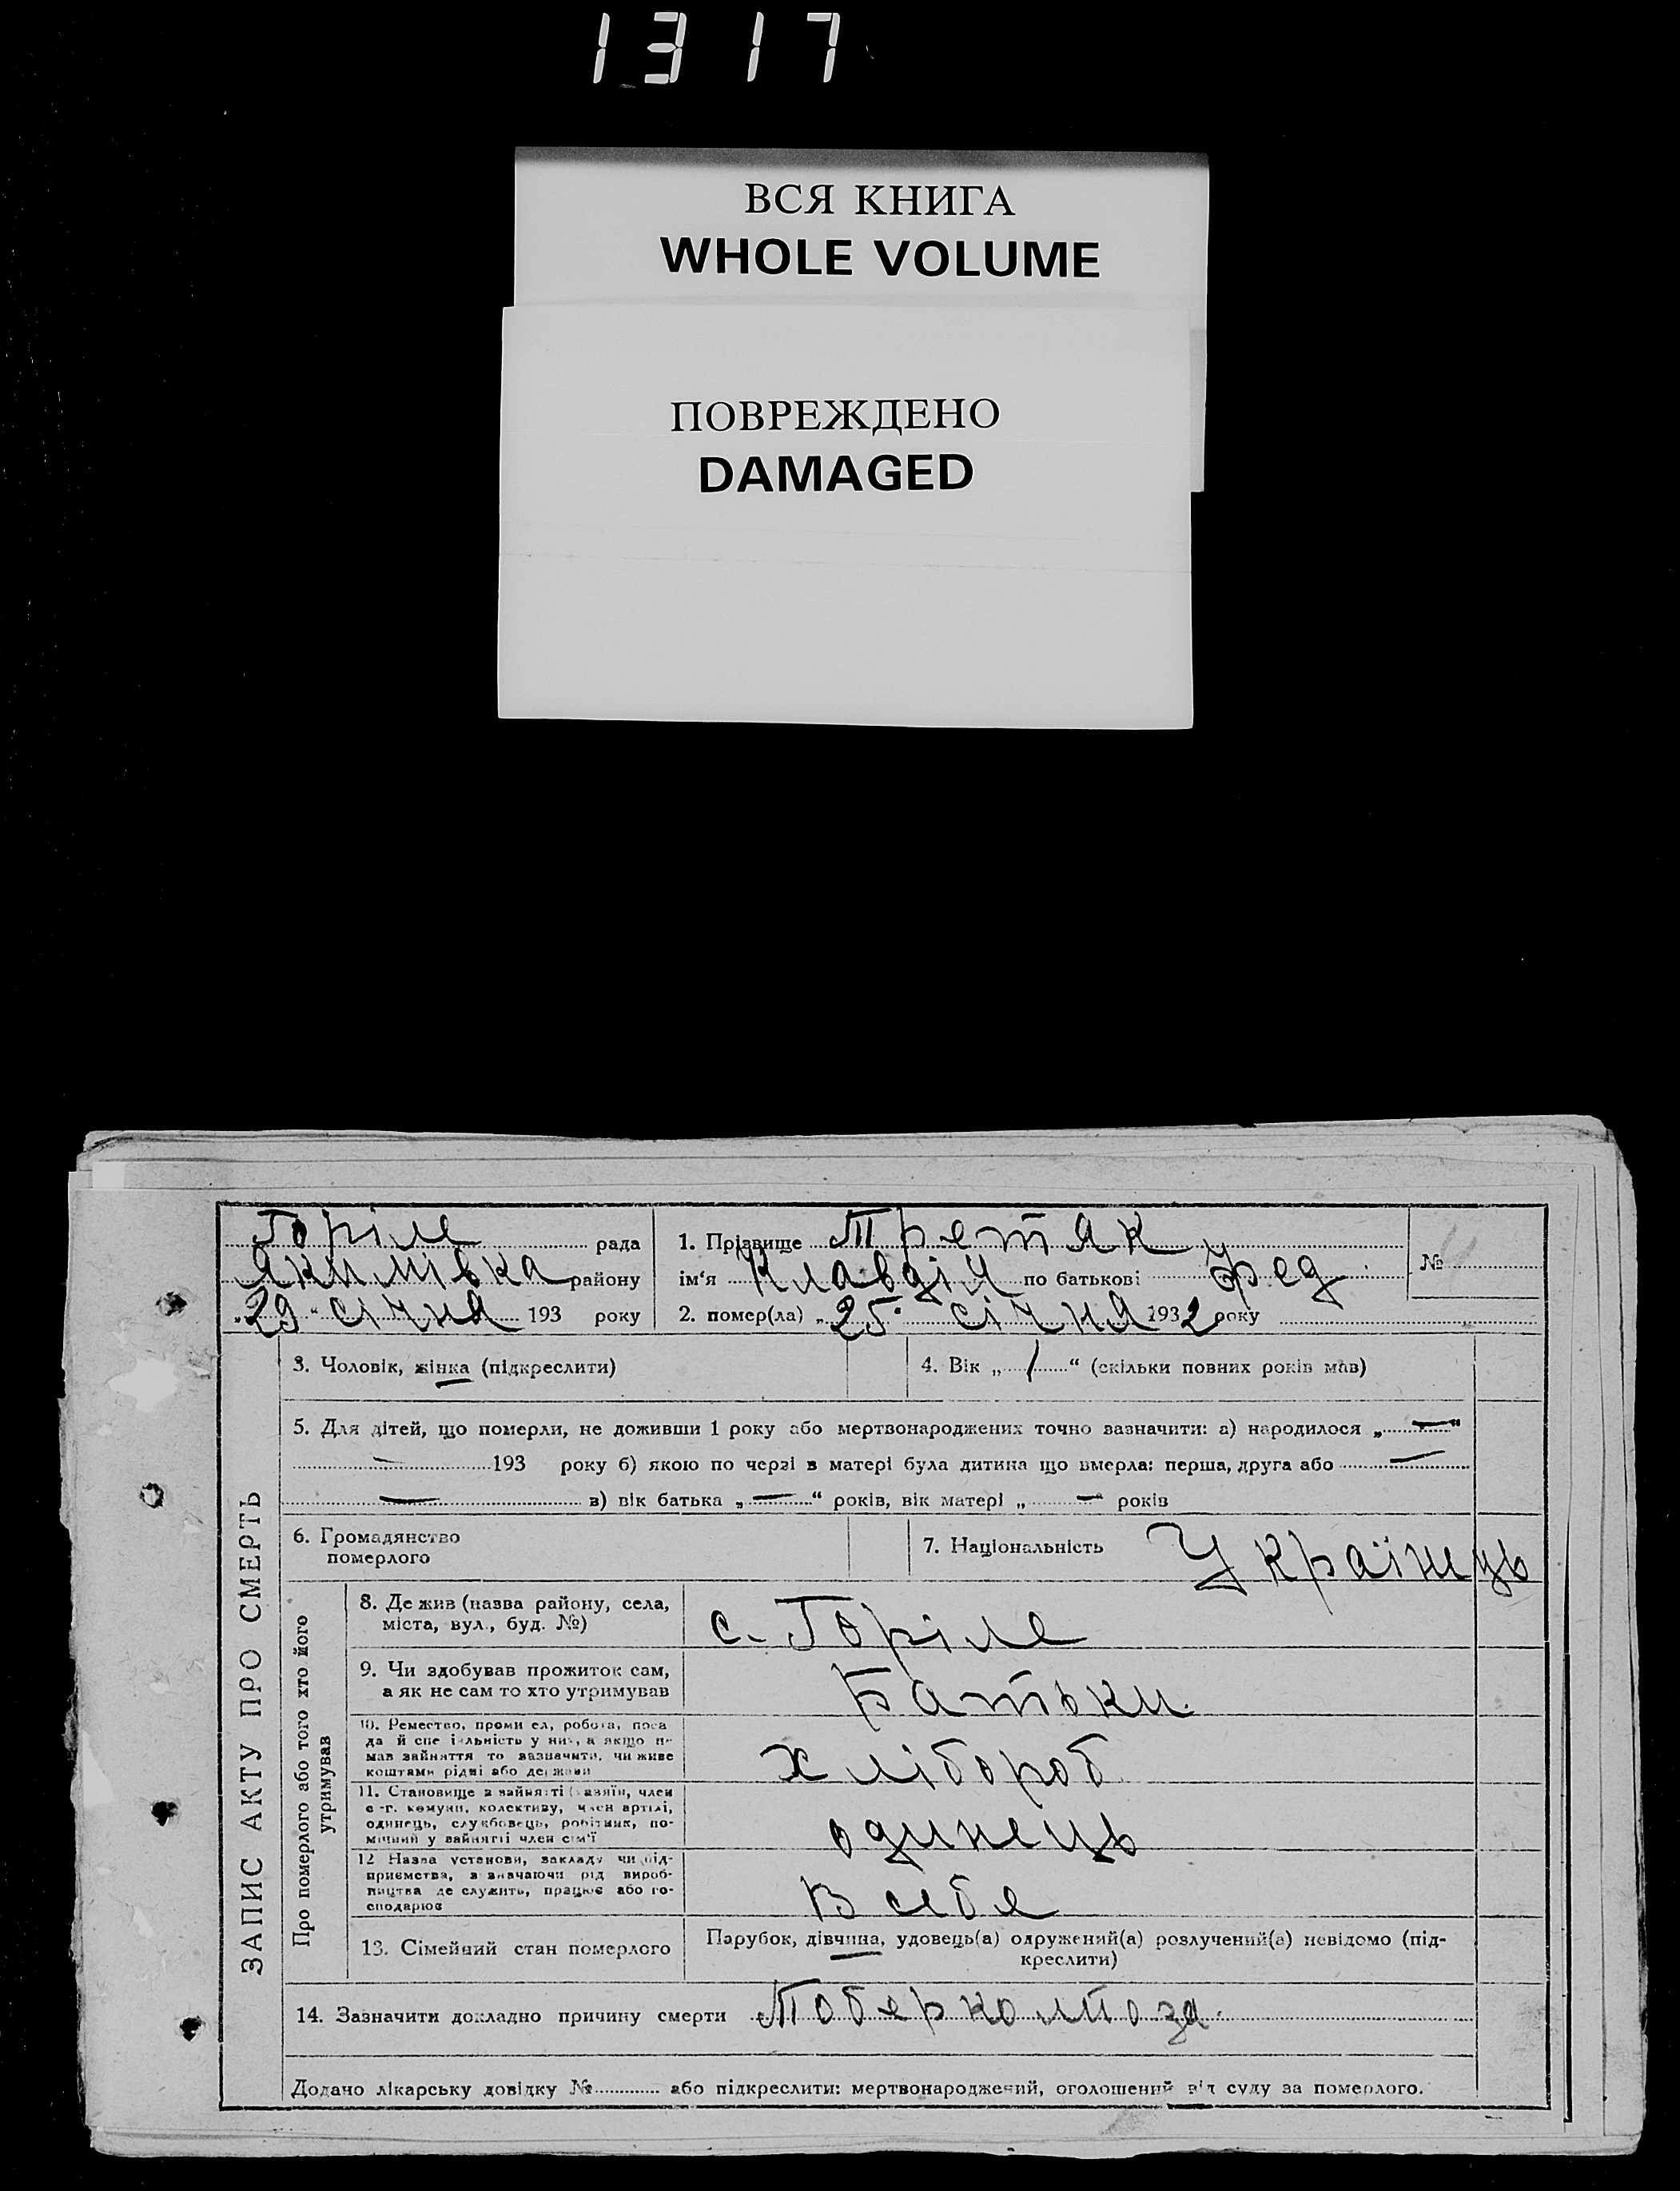 1317
ВСЯ КНИГА
WHOLE VOLUME
ПОВРЕЖДЕНО
DAMAGED
ЗАПИС АКТУ ПРО СМЕРТЬ
Горіле рада
Якимівка району
„29“ січня 193 року
1. Прізвище Третяк
ім‘я Клавдія по батькові Фед.
2. помер(ла) „25 січня 1932 року
№
3. Чоловік, жінка (підкреслити)
4. Вік „1“ (скільки повних років мав)
5. Для дітей, що померли, не доживши 1 року або мертвонароджених точно зазначити: а) народилося „—“
— 193 року б) якою по черзі в матері була дитина що вмерла: перша, друга або —
— в) вік батька „—“ років, вік матері „—“ років
6. Громадянство
померлого
7. Національність Українець
Про померлого або того хто його
утримував
8. Де жив (назва району, села,
міста, вул., буд. №)
с. Горіле
9. Чи здобував прожиток сам,
а як не сам то хто утримував
Батьки
10. Ремество, промисел, робота, поса
да й спеціяльність у них, а якщо не
мав зайняття то зазначити, чи живе
коштами рідні або держави
хлібороб
11. Становище в зайнятті (хазяїн, член
с.-г. комуни, колективу, член артілі,
одинець, службовець, робітник, по-
мічний у зайнятті член сім‘ї
одинець
12 Назва установи, закладу чи під-
приємства, зазначаючи рід вироб-
ництва де служить, працює або го-
сподарює
В себе
13. Сімейний стан померлого
Парубок, дівчина, удовець(а) одружений(а) розлучений(а) невідомо (під-
креслити)
14. Зазначити докладно причину смерти Тоберкольоза.
Додано лікарську довідку № або підкреслити: мертвонароджений, оголошений від суду за померлого.